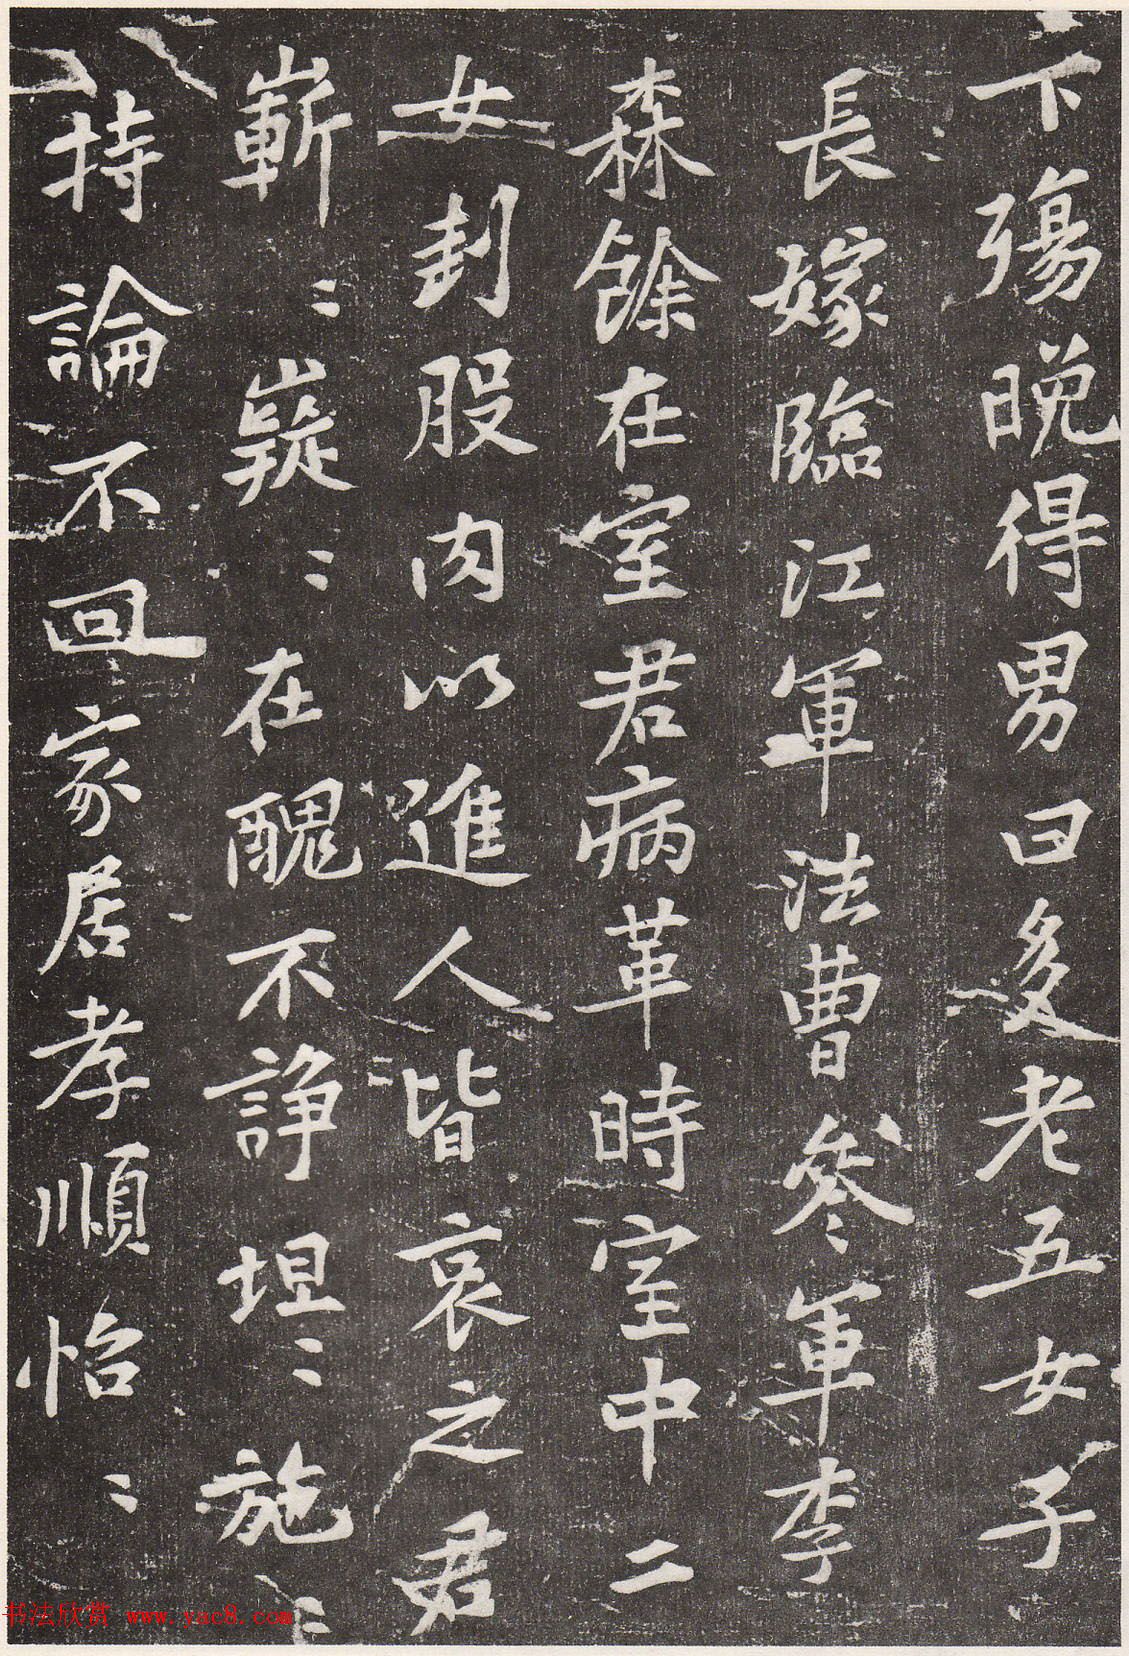 下殤晚得男曰多老五女子
長嫁臨江軍法曹參軍李
森餘在室君病革時室中二
女刲股肉以進人皆哀之君
嶄〻嶷〻在醜不諍坦〻施〻
持論不回家居孝順怡〻
书法欣赏 www.yac8.com